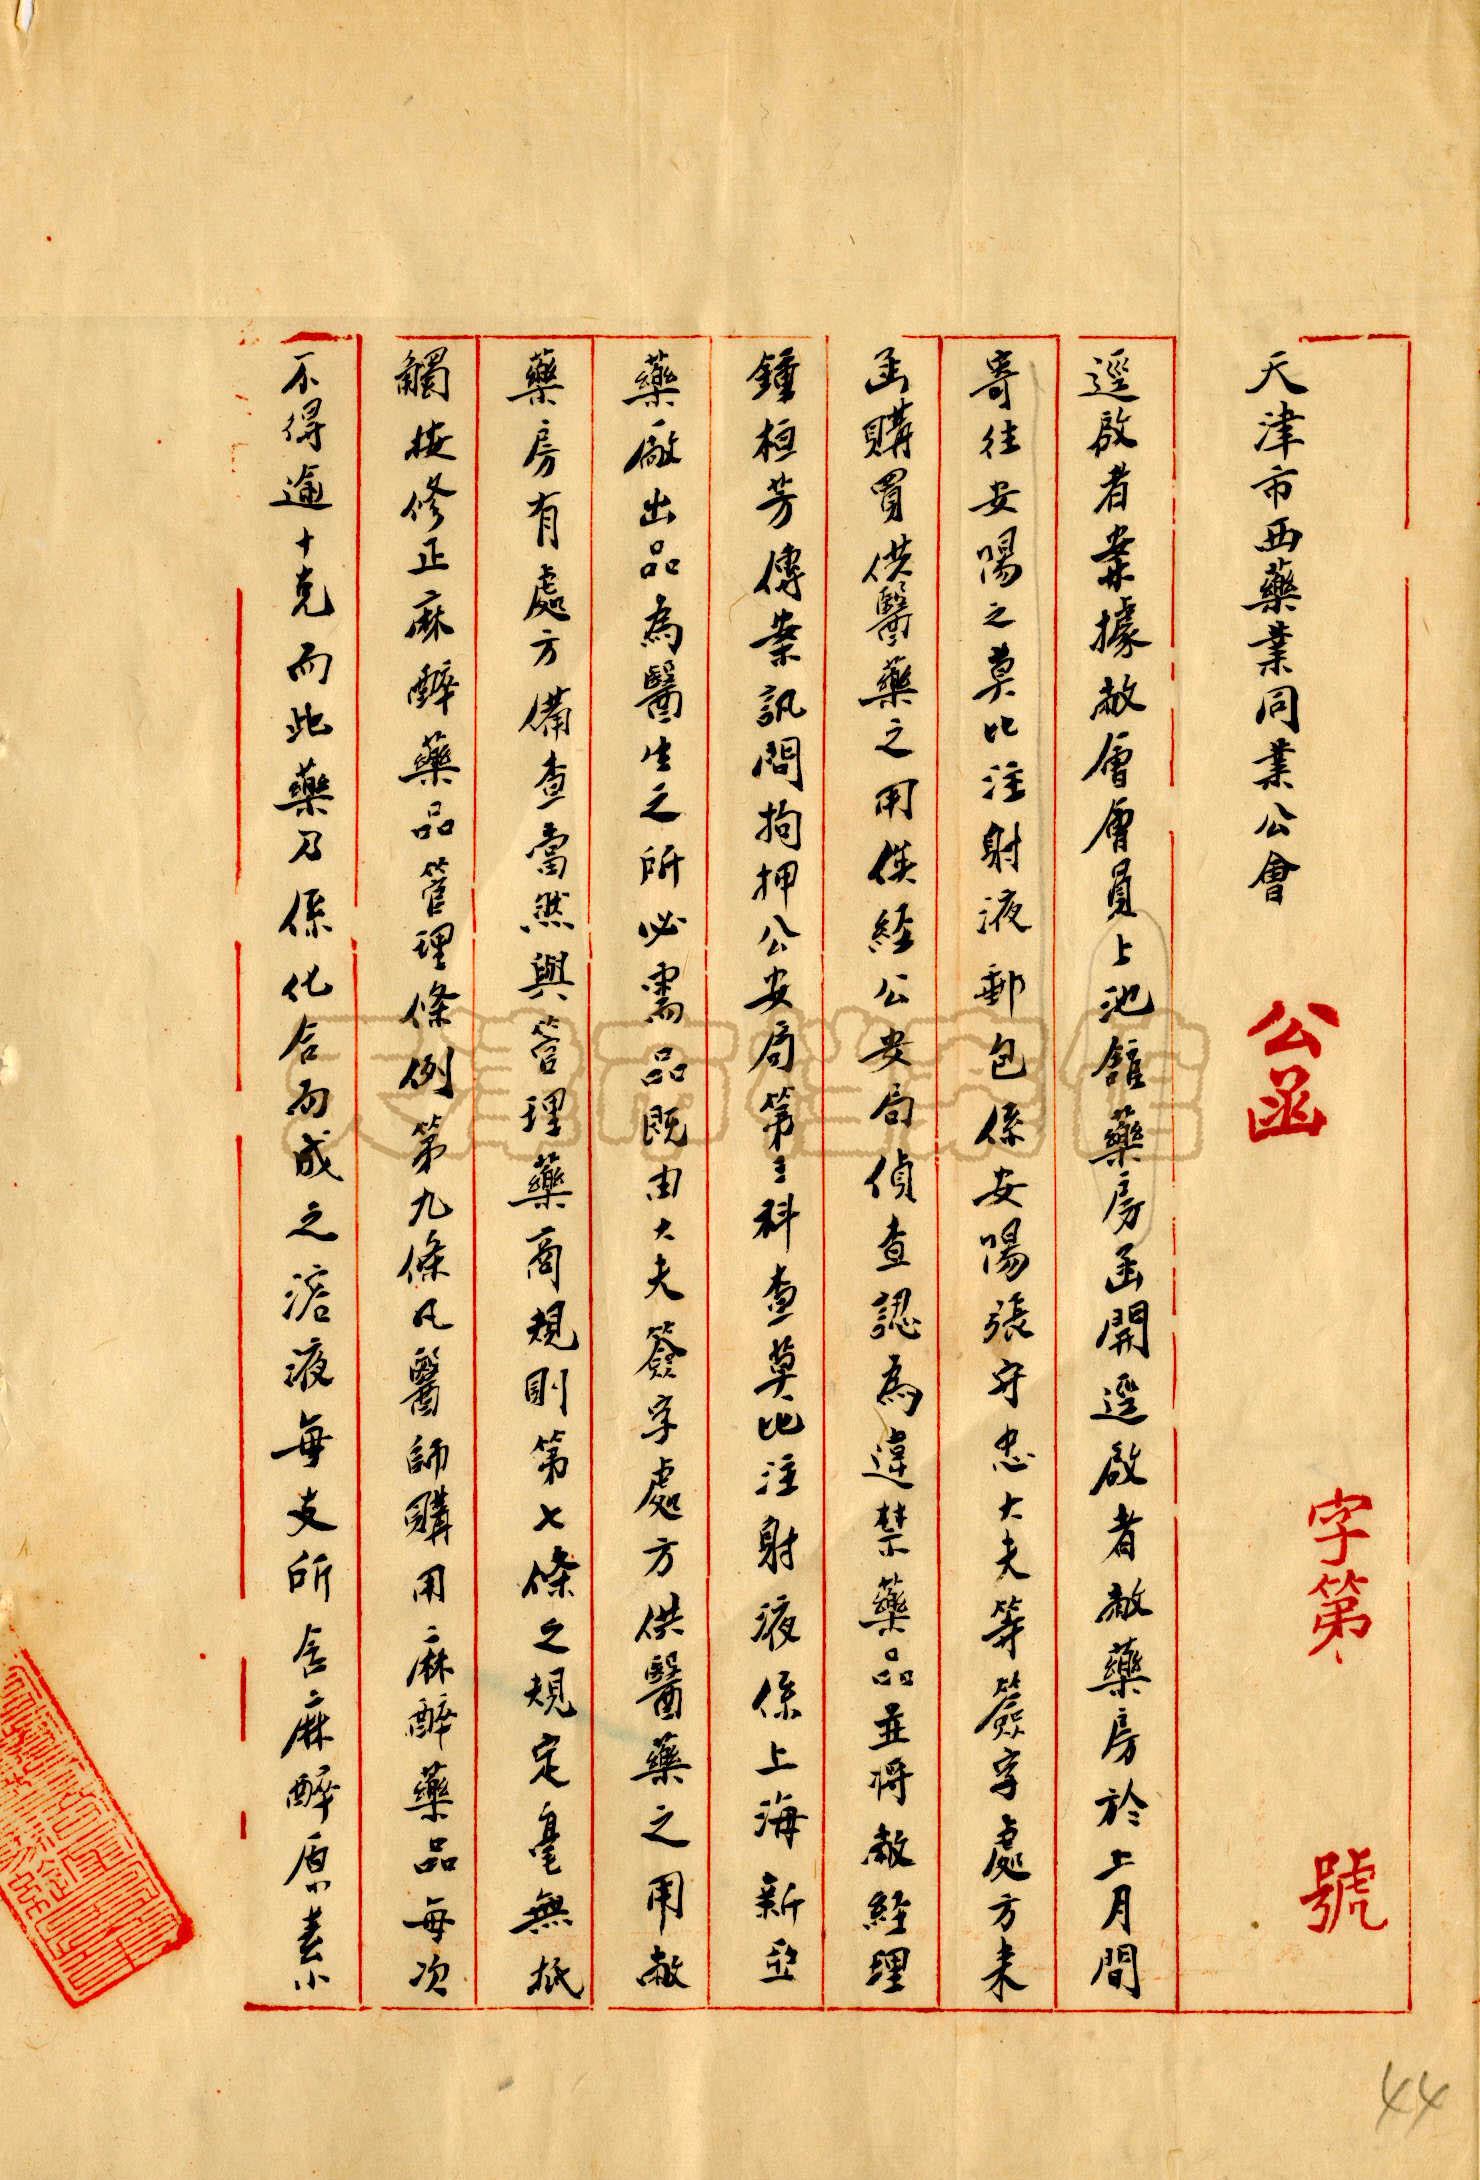 天津市西藥業同業公會 公函 字第 號
逕啟者案據敝會會員上池館藥房函開逕啟者敝藥房於上月間
寄往安陽之莫比注射液郵包係安陽張守忠大夫等簽字處方來
函購買供醫藥之用俟經公安局偵查認為違禁藥品並將敝經理
鍾桓芳傳案訊問拘押公安局第三科查莫比注射液係上海新亞
藥廠出品為醫生之所必需品既由大夫簽字處方供醫藥之用敝
藥房有處方備查當然與管理藥商規則第七條之規定毫無抵
觸按修正麻醉藥品管理條例第九條凡醫師購用麻醉藥品每次
不得逾十克而此藥乃係化合而成之溶液每支所含麻醉原素小
44